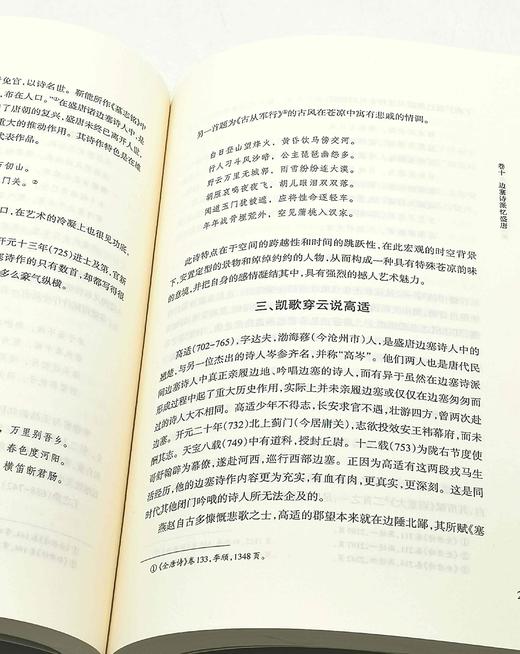 免官,以诗名世。靳能所作《墓志铭》中
布在人口。”③在盛唐诸边塞诗人中,是
了唐朝的复兴,盛唐未终已离开人世,
重大的推动作用。其诗作特色是在境
代表作品。
万仞山。
门关。②
,在艺术的冷凝上也很见功底。
开元十三年(725)进士及第,官新
塞诗作的只有数首,却都写得很
多么豪气纵横。
万里别吾乡。
春色度河阳。
横笛断君肠。
另一首题为《古从军行》①的古风在苍凉中寓有悲戚的情调。
白日登山望烽火,黄昏饮马傍交河。
行人刁斗风沙暗,公主琵琶幽怨多。
野云万里无城郭,雨雪纷纷连大漠。
胡雁哀鸣夜夜飞,胡儿眼泪双双落。
闻道玉门犹被遮,应将性命逐轻车。
年年战骨埋荒外,空见蒲桃入汉家。
此诗特点在于空间的跨越性和时间的跳跃性,在此宏观的时空背景
下,安置定型的景物和绰绰约约的人物,从而构成一种具有特殊苍凉韵味
的意境,并把自身的感情凝结其中,具有强烈的撼人艺术魅力。
三、凯歌穿云说高适
高适(702-765),字达夫,渤海蓨(今沧州市)人,是盛唐边塞诗人中的
翘楚,与另一位杰出的诗人岑参齐名,并称“高岑”。他们两人也是唐代民
间边塞诗人中真正亲履边地、吟唱边塞的诗人,而有异于虽然在边塞诗派
形成过程中起了重大历史作用,实际上并未亲履边塞或仅仅在边塞匆匆而
过的诗人大不相同。高适少年不得志,长安求官不遇,壮游四方,曾两次赴
边塞。开元二十年(732)北上蓟门(今居庸关),志欲投效安王祎幕府,而未
酬其志。天宝八载(749)中有道科,授封丘尉。十二载(753)为陇右节度使
哥舒翰辟为幕僚,遂赴河西,巡行西部边塞。正因为高适有这两段戎马生
活经历,他的边塞诗作内容更为充实,有血有肉,更真实,更深刻。这是同
时代其他闭门吟哦的诗人所无法企及的。
燕赵自古多慷慨悲歌之士,高适的郡望本来就在边陲北鄙,其所赋《塞
①《全唐诗》卷133,李颀,1348页。
卷十 边塞诗派忆盛唐